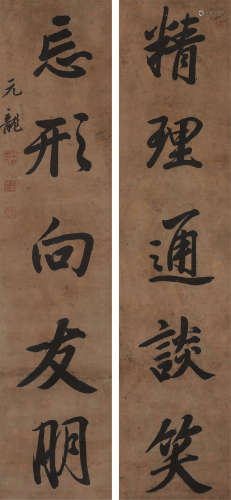 精理通談笑
忘形向友朋
元龍